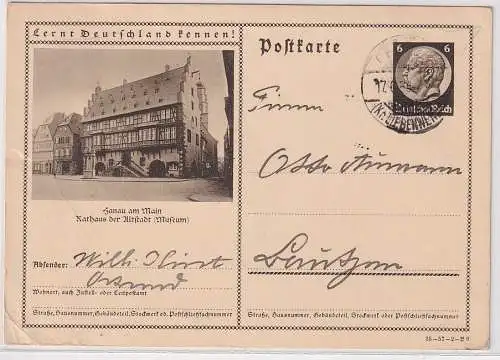 Lernt Deutschland kennen!
Hanau am Main
Rathaus der Altstadt (Museum)
Absender:
Wohnort, auch Zustell- oder Leitpostamt
Straße, Hausnummer, Gebäudeteil, Stockwerk od. Postschließfachnummer
Postkarte
6 6
Deutsches Reich
Firma
Otto
Bautzen
Straße, Hausnummer, Gebäudeteil, Stockwerk oder Postschließfachnummer